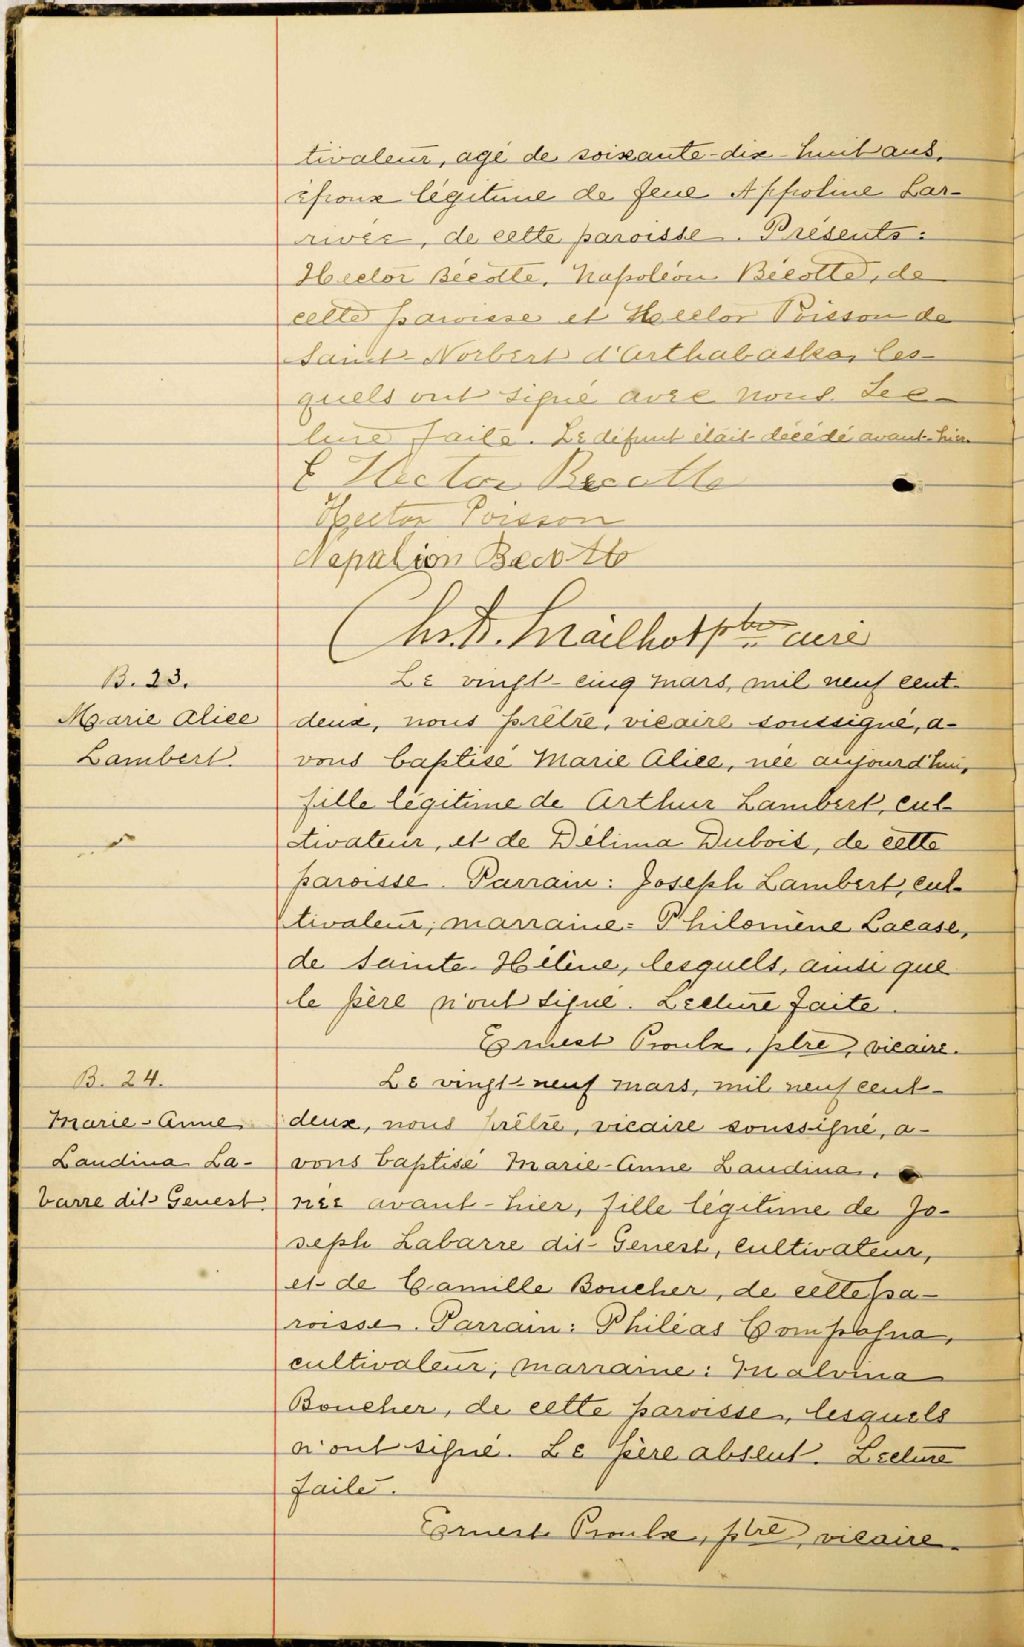 tivateur, agé de soixante-dix-huit ans,
époux légitime de feue Appoline Lar-
rivée, de cette paroisse. Présents:
Hector Bécotte, Napoléon Bécotte, de
cette paroisse et Hector Poisson de
Saint-Norbert d'Arthabaska, les-
quels ont signé avec nous. Lec-
ture faite. Le défunt était décédé avant-hier.
E Hector Becotte
Hector Poisson
Napalion Becotte
Chs. A. Mailhot ptre curé
B. 23.
Marie Alice
Lambert.
Le vingt-cinq mars, mil neuf cent-
deux, nous prêtre, vicaire soussigné, a-
vons baptisé Marie Alice, née aujourd'hui,
fille légitime de Arthur Lambert, cul-
tivateur, et de Délima Dubois, de cette
paroisse. Parrain: Joseph Lambert, cul-
tivateur; marraine: Philomène Lacase,
de Sainte-Hélène, lesquels, ainsi que
le père n'ont signé. Lecture faite.
Ernest Proulx, ptre, vicaire.
B. 24.
Marie-Anne
Laudina La-
barre dit Genest.
Le vingt-neuf mars, mil neuf cent-
deux, nous prêtre, vicaire soussigné, a-
vons baptisé Marie-Anne Laudina,
née avant-hier, fille légitime de Jo-
seph Labarre dit Genest, cultivateur,
et de Camille Boucher, de cette pa-
roisse. Parrain: Philéas Compagna,
cultivateur; marraine: Malvina
Boucher, de cette paroisse, lesquels
n'ont signé. Le père absent. Lecture
faite.
Ernest Proulx, ptre, vicaire.